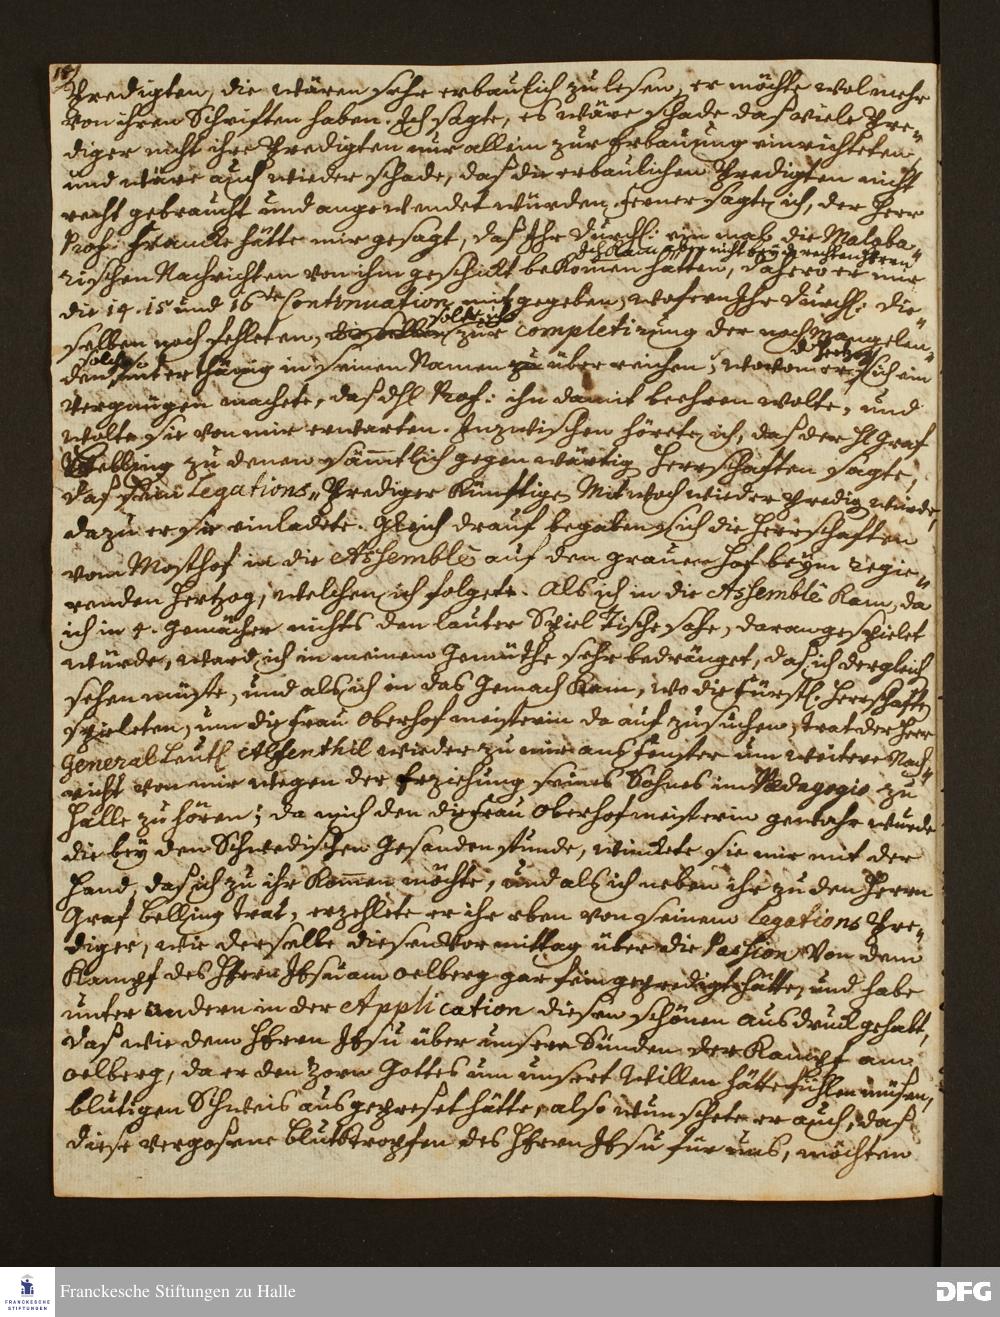 Predigten, die wären sehr erbaulich zu lesen, er möchte wol mehr
von ihren Schrifften haben. Ich sagte, es wäre schade daß viele Pre„
diger nicht ihre Predigten nur allein zur Erbauung einrichteten,
und wäre auch wieder schade, daß die erbaulichen Predigten nicht
recht gebraucht und angewendet würden. Ferner sagte ich, der Herr
Prof: Francke hätte mir gesagt, daß Ihr Durchl: die Malaba„
rischen Nachrichten von ihm geschickt bekomen hätten, dahero er mir
die 14. 15 und 16te Continuation mit gegeben, wofern Ihr Durchl: die„
selben noch fehleten, solte ich zur completirung der noch Mangelen„
den solche unterthänig in seinen Namen über reichen; wovon er sich ein
Vergnügen machete, daß H Prof: ihn damit beehren wolte, und
wolte sie von mir erwarten. Inzwischen hörete ich, daß der H Graf
Belling zu denen sämtlich gegenwärtig Herrschafften sagte,
daß sein Legations„ Prediger künfftige Mitwoch wieder predig würde,
dazu er sie einladete. Gleich drauf begaben sich die Herrschafften
vom Mosthof in die Assemblé auf den grauen Hof beym regie„
renden Hertzog, welchen ich folgete. Als ich in die Assemblé kam, da
ich in 4. Gemächer nichts den lauter Spiel Tische sahe, daran gespielet
würde, ward ich in meinem Gemüthe sehr bedränget, daß ich dergleich
sehen müste, und als ich in das Gemach kam, wo die Fürstl. Herrschafft
spieleten, um die Frau Oberhofmeisterin da aufzusuchen, trat der Herr
General Leutl wieder zu mir ans Fenster um weitere Nach„
richt von mir wegen der Erziehung seines Sohnes im Pædagogio zu
Halle zu hören; da mich den die Frau Oberhofmeisterin gewahr wurde
die bey den Schwedischen Gesanden stunde, winckete sie mir mit der
Hand, daß ich zu ihr kommen möchte, und als ich neben ihr zu den Herrn
Graf Belling trat, erzehlete er ihr eben von seinem Legations Pre„
diger, wie derselbe diesen Vormittag über die Passion von dem
Kampf des HErrn JEsu am Oelberg gar fein geprediget hätte, und habe
unter andern in der Application diesen schönen ausdruck gehabt,
daß wie dem HErrn JEsu über unsere Sünden der Kampf am
Oelberg, da er den Zorn Gottes um unsert Willen hätte fühlen müssen,
blutigen Schweis ausgepresset hätte, also wünschete er auch, daß
diese vergossene Blutstropfen des HErrn JEsu für uns, möchten
Franckesche Stiftungen zu Halle
FRANCKESCHE
STIFTUNGEN
DFG